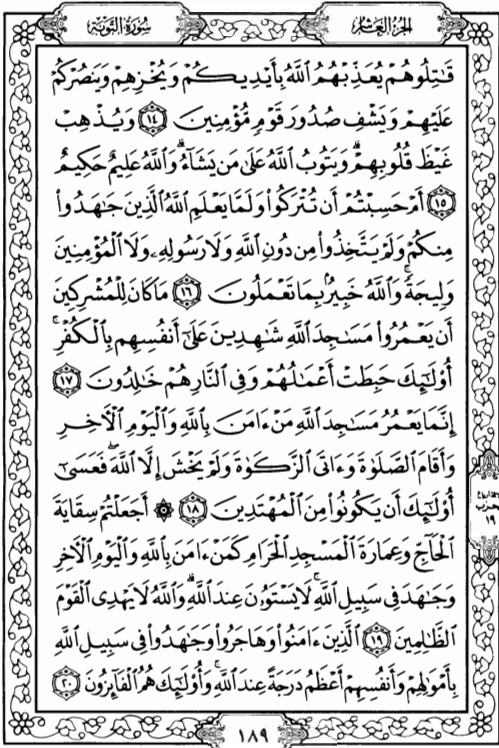 الجزء العاشر
سورة التوبة
قَـٰتِلُوهُمْ يُعَذِّبْهُمُ ٱللَّهُ بِأَيْدِيكُمْ وَيُخْزِهِمْ وَيَنصُرْكُمْ
عَلَيْهِمْ وَيَشْفِ صُدُورَ قَوْمٍ مُّؤْمِنِينَ ١٤ وَيُذْهِبْ
غَيْظَ قُلُوبِهِمْ ۗ وَيَتُوبُ ٱللَّهُ عَلَىٰ مَن يَشَآءُ ۗ وَٱللَّهُ عَلِيمٌ حَكِيمٌ
١٥ أَمْ حَسِبْتُمْ أَن تُتْرَكُوا۟ وَلَمَّا يَعْلَمِ ٱللَّهُ ٱلَّذِينَ جَـٰهَدُوا۟
مِنكُمْ وَلَمْ يَتَّخِذُوا۟ مِن دُونِ ٱللَّهِ وَلَا رَسُولِهِۦ وَلَا ٱلْمُؤْمِنِينَ
وَلِيجَةً ۚ وَٱللَّهُ خَبِيرٌۢ بِمَا تَعْمَلُونَ ١٦ مَا كَانَ لِلْمُشْرِكِينَ
أَن يَعْمُرُوا۟ مَسَـٰجِدَ ٱللَّهِ شَـٰهِدِينَ عَلَىٰٓ أَنفُسِهِم بِٱلْكُفْرِ ۚ
أُو۟لَـٰٓئِكَ حَبِطَتْ أَعْمَـٰلُهُمْ وَفِى ٱلنَّارِ هُمْ خَـٰلِدُونَ ١٧
إِنَّمَا يَعْمُرُ مَسَـٰجِدَ ٱللَّهِ مَنْ ءَامَنَ بِٱللَّهِ وَٱلْيَوْمِ ٱلْـَٔاخِرِ
وَأَقَامَ ٱلصَّلَوٰةَ وَءَاتَى ٱلزَّكَوٰةَ وَلَمْ يَخْشَ إِلَّا ٱللَّهَ ۖ فَعَسَىٰٓ
أُو۟لَـٰٓئِكَ أَن يَكُونُوا۟ مِنَ ٱلْمُهْتَدِينَ ١٨ ۞ أَجَعَلْتُمْ سِقَايَةَ
ٱلْحَآجِّ وَعِمَارَةَ ٱلْمَسْجِدِ ٱلْحَرَامِ كَمَنْ ءَامَنَ بِٱللَّهِ وَٱلْيَوْمِ ٱلْـَٔاخِرِ
وَجَـٰهَدَ فِى سَبِيلِ ٱللَّهِ ۚ لَا يَسْتَوُۥنَ عِندَ ٱللَّهِ ۗ وَٱللَّهُ لَا يَهْدِى ٱلْقَوْمَ
ٱلظَّـٰلِمِينَ ١٩ ٱلَّذِينَ ءَامَنُوا۟ وَهَاجَرُوا۟ وَجَـٰهَدُوا۟ فِى سَبِيلِ ٱللَّهِ
بِأَمْوَٰلِهِمْ وَأَنفُسِهِمْ أَعْظَمُ دَرَجَةً عِندَ ٱللَّهِ ۚ وَأُو۟لَـٰٓئِكَ هُمُ ٱلْفَآئِزُونَ ٢٠
حزب
١٩
١٨٩